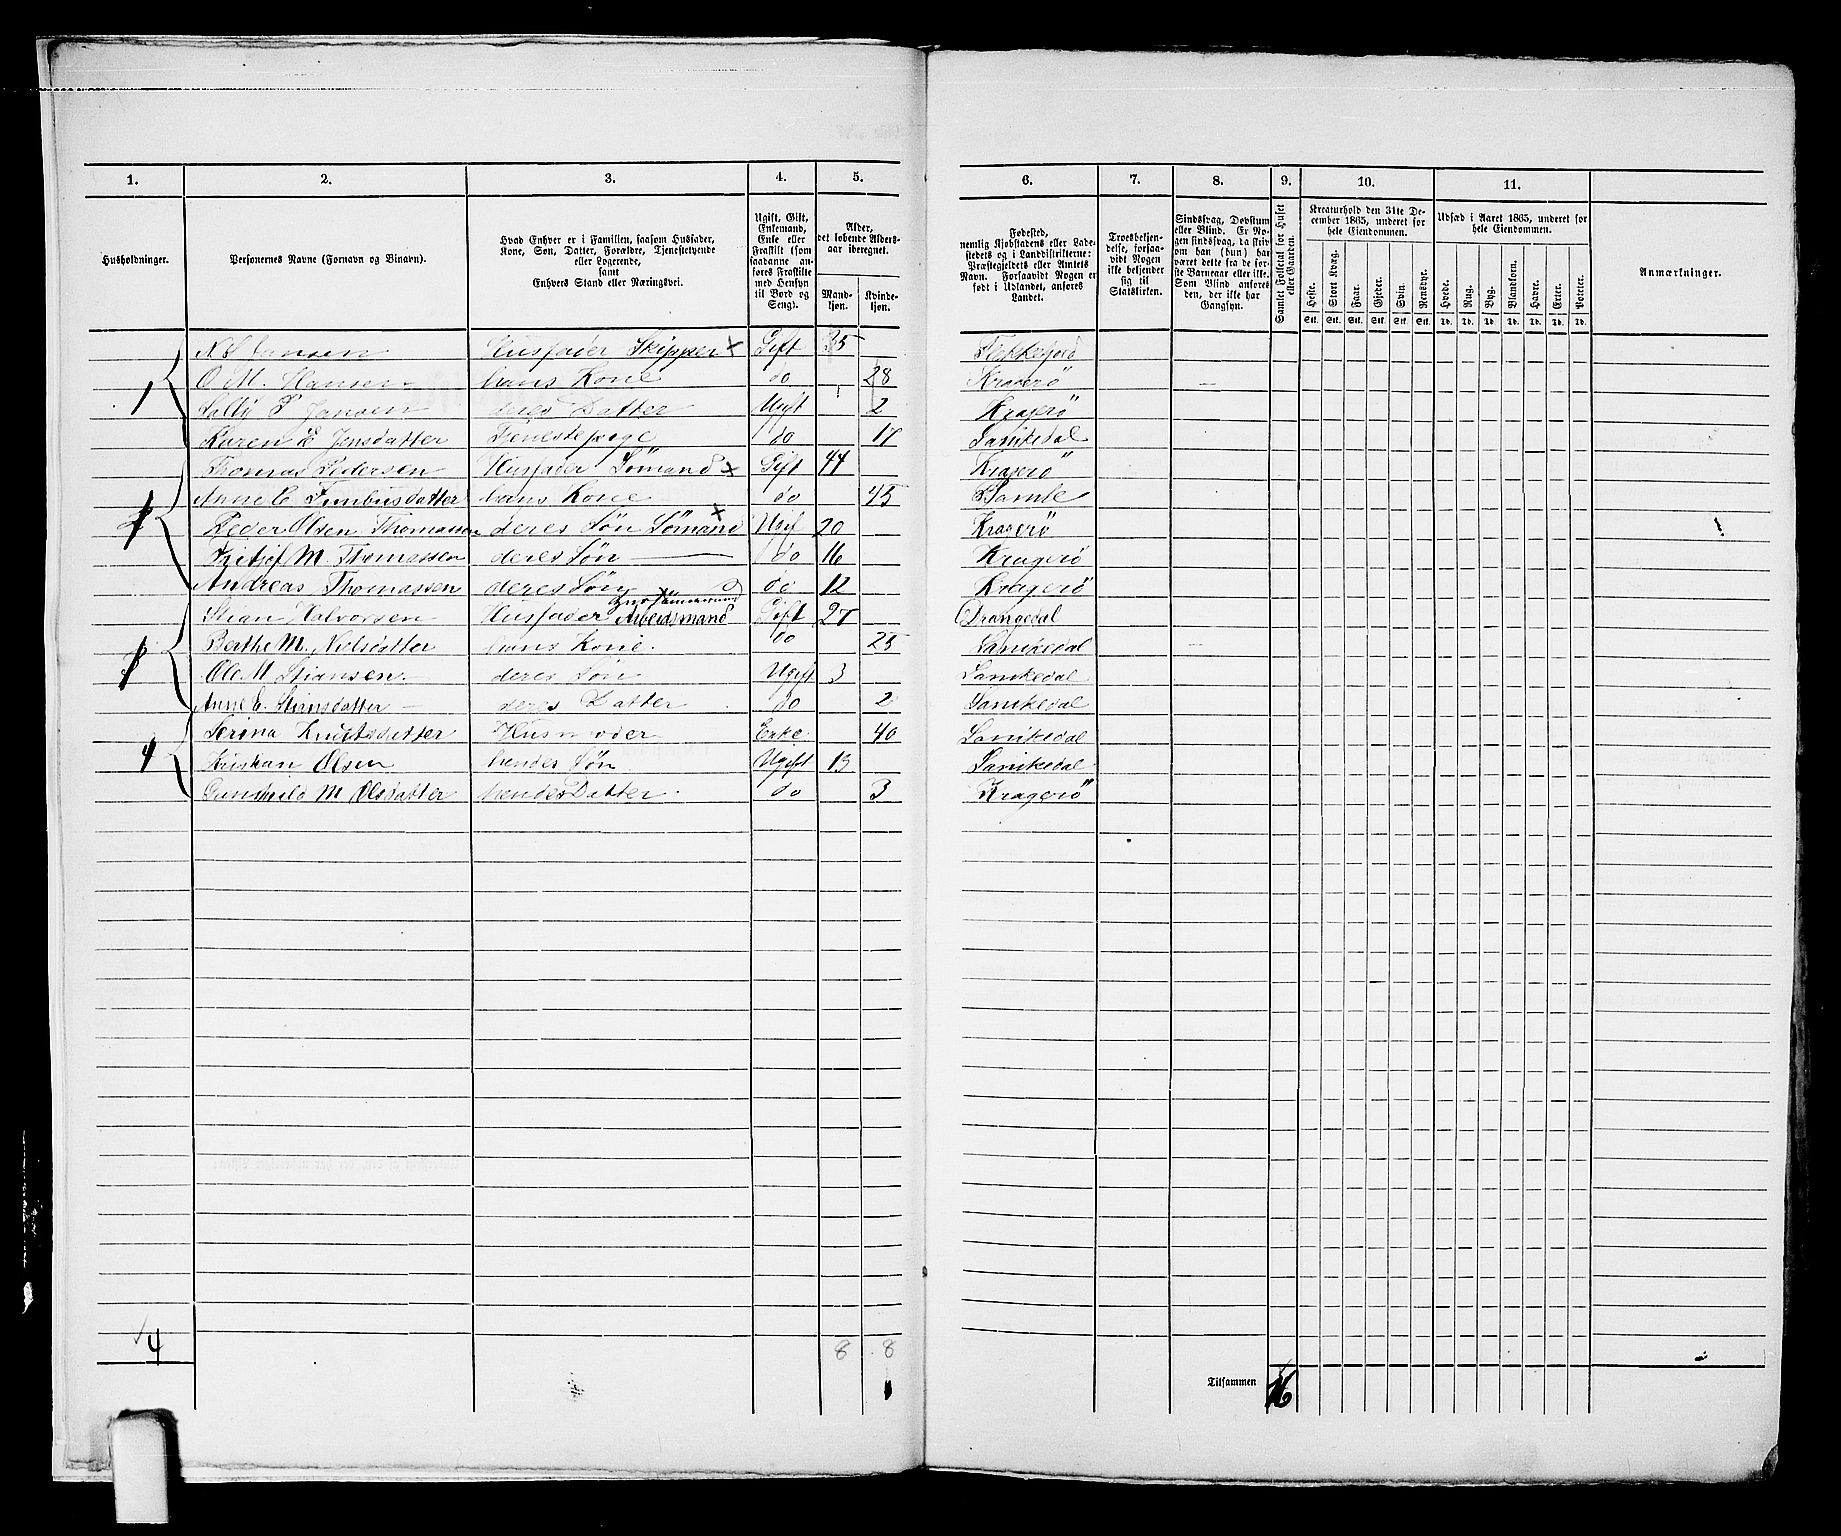 1. 2. 3. 4. 5. 6. 7. 8. 9. 10. 11.
Husholdninger.
Personernes Navne (Fornavn og Binavn).
Hvad Enhver er i Familien, saasom Husfader, Kone, Søn, Datter, Forældre, Tjenestetyende eller Logerende, samt Enhvers Stand eller Næringsvei.
Ugift, Gift, Enkemand, Enke eller Fraskilt (som saadanne anføres Fraskilte med Hensyn til Bord og Seng).
Alder, det løbende Aldersaar iberegnet.
Mandkjøn. Kvindekjøn.
Fødested, nemlig Kjøbstadens eller Ladestedets og i Landdistrikterne: Præstegjeldets eller Amtets Navn. Forsaavidt Nogen er født i Udlandet, anføres Landet.
Troesbekjendelse, forsaavidt Nogen ikke bekjender sig til Statskirken.
Sindssvag, Døvstum eller Blind. Er Nogen sindssvag, da skrives om han (hun) har været dette fra de første Barneaar eller ikke. Som Blind anføres den, der ikke har Gangsyn.
Samlet Folketal for Huset eller Gaarden.
Kreaturhold den 31te December 1865, underet for hele Eiendommen.
Heste. Stort Kvæg. Faar. Gjeder. Svin. Rensdyr.
Stk. Stk. Stk. Stk. Stk. Stk.
Udsæd i Aaret 1865, underet for hele Eiendommen.
Hvede. Rug. Byg. Blandkorn. Havre. Erter. Poteter.
Td. Td. Td. Td. Td. Td. Td.
Anmærkninger.
1 Jansen Husfader Skipper x Gift 35 Flekkefjord
O M. Hansen hans Kone do 28 Kragerö
Jansen deres Datter Ugift 2 Kragerö
Karen E Jensdatter Tjenestepige do 17 Sanikedal
2 Thomas Pedersen Husfader Sömand x Gift 44 Kragerö
Anne E hans Kone do 45 Bamle
Peder Olsen Thomassen deres Sön Sömand x Ugift 20 Kragerö
Fritjof M. Thomassen deres Sön do 16 Kragerö
Andreas Thomassen deres Sön do 12 Kragerö
3 Stian Halvorsen Husfader Arbeidsmand Gift 27 Drangedal
Berthe M. Nielsdatter hans Kone do 25 Sanikedal
Ole M Stiansen deres Sön Ugift 3 Sanikedal
Anne E. Stiansdatter deres Datter do 2 Sanikedal
4 Serina Knutsdatter Husmoder Enke 40 Sanikedal
Kristian Olsen hendes Sön Ugift 13 Sanikedal
Gunhild M Olsdatter hendes Datter do 3 Kragerö
4 8 8
Tilsammen 16